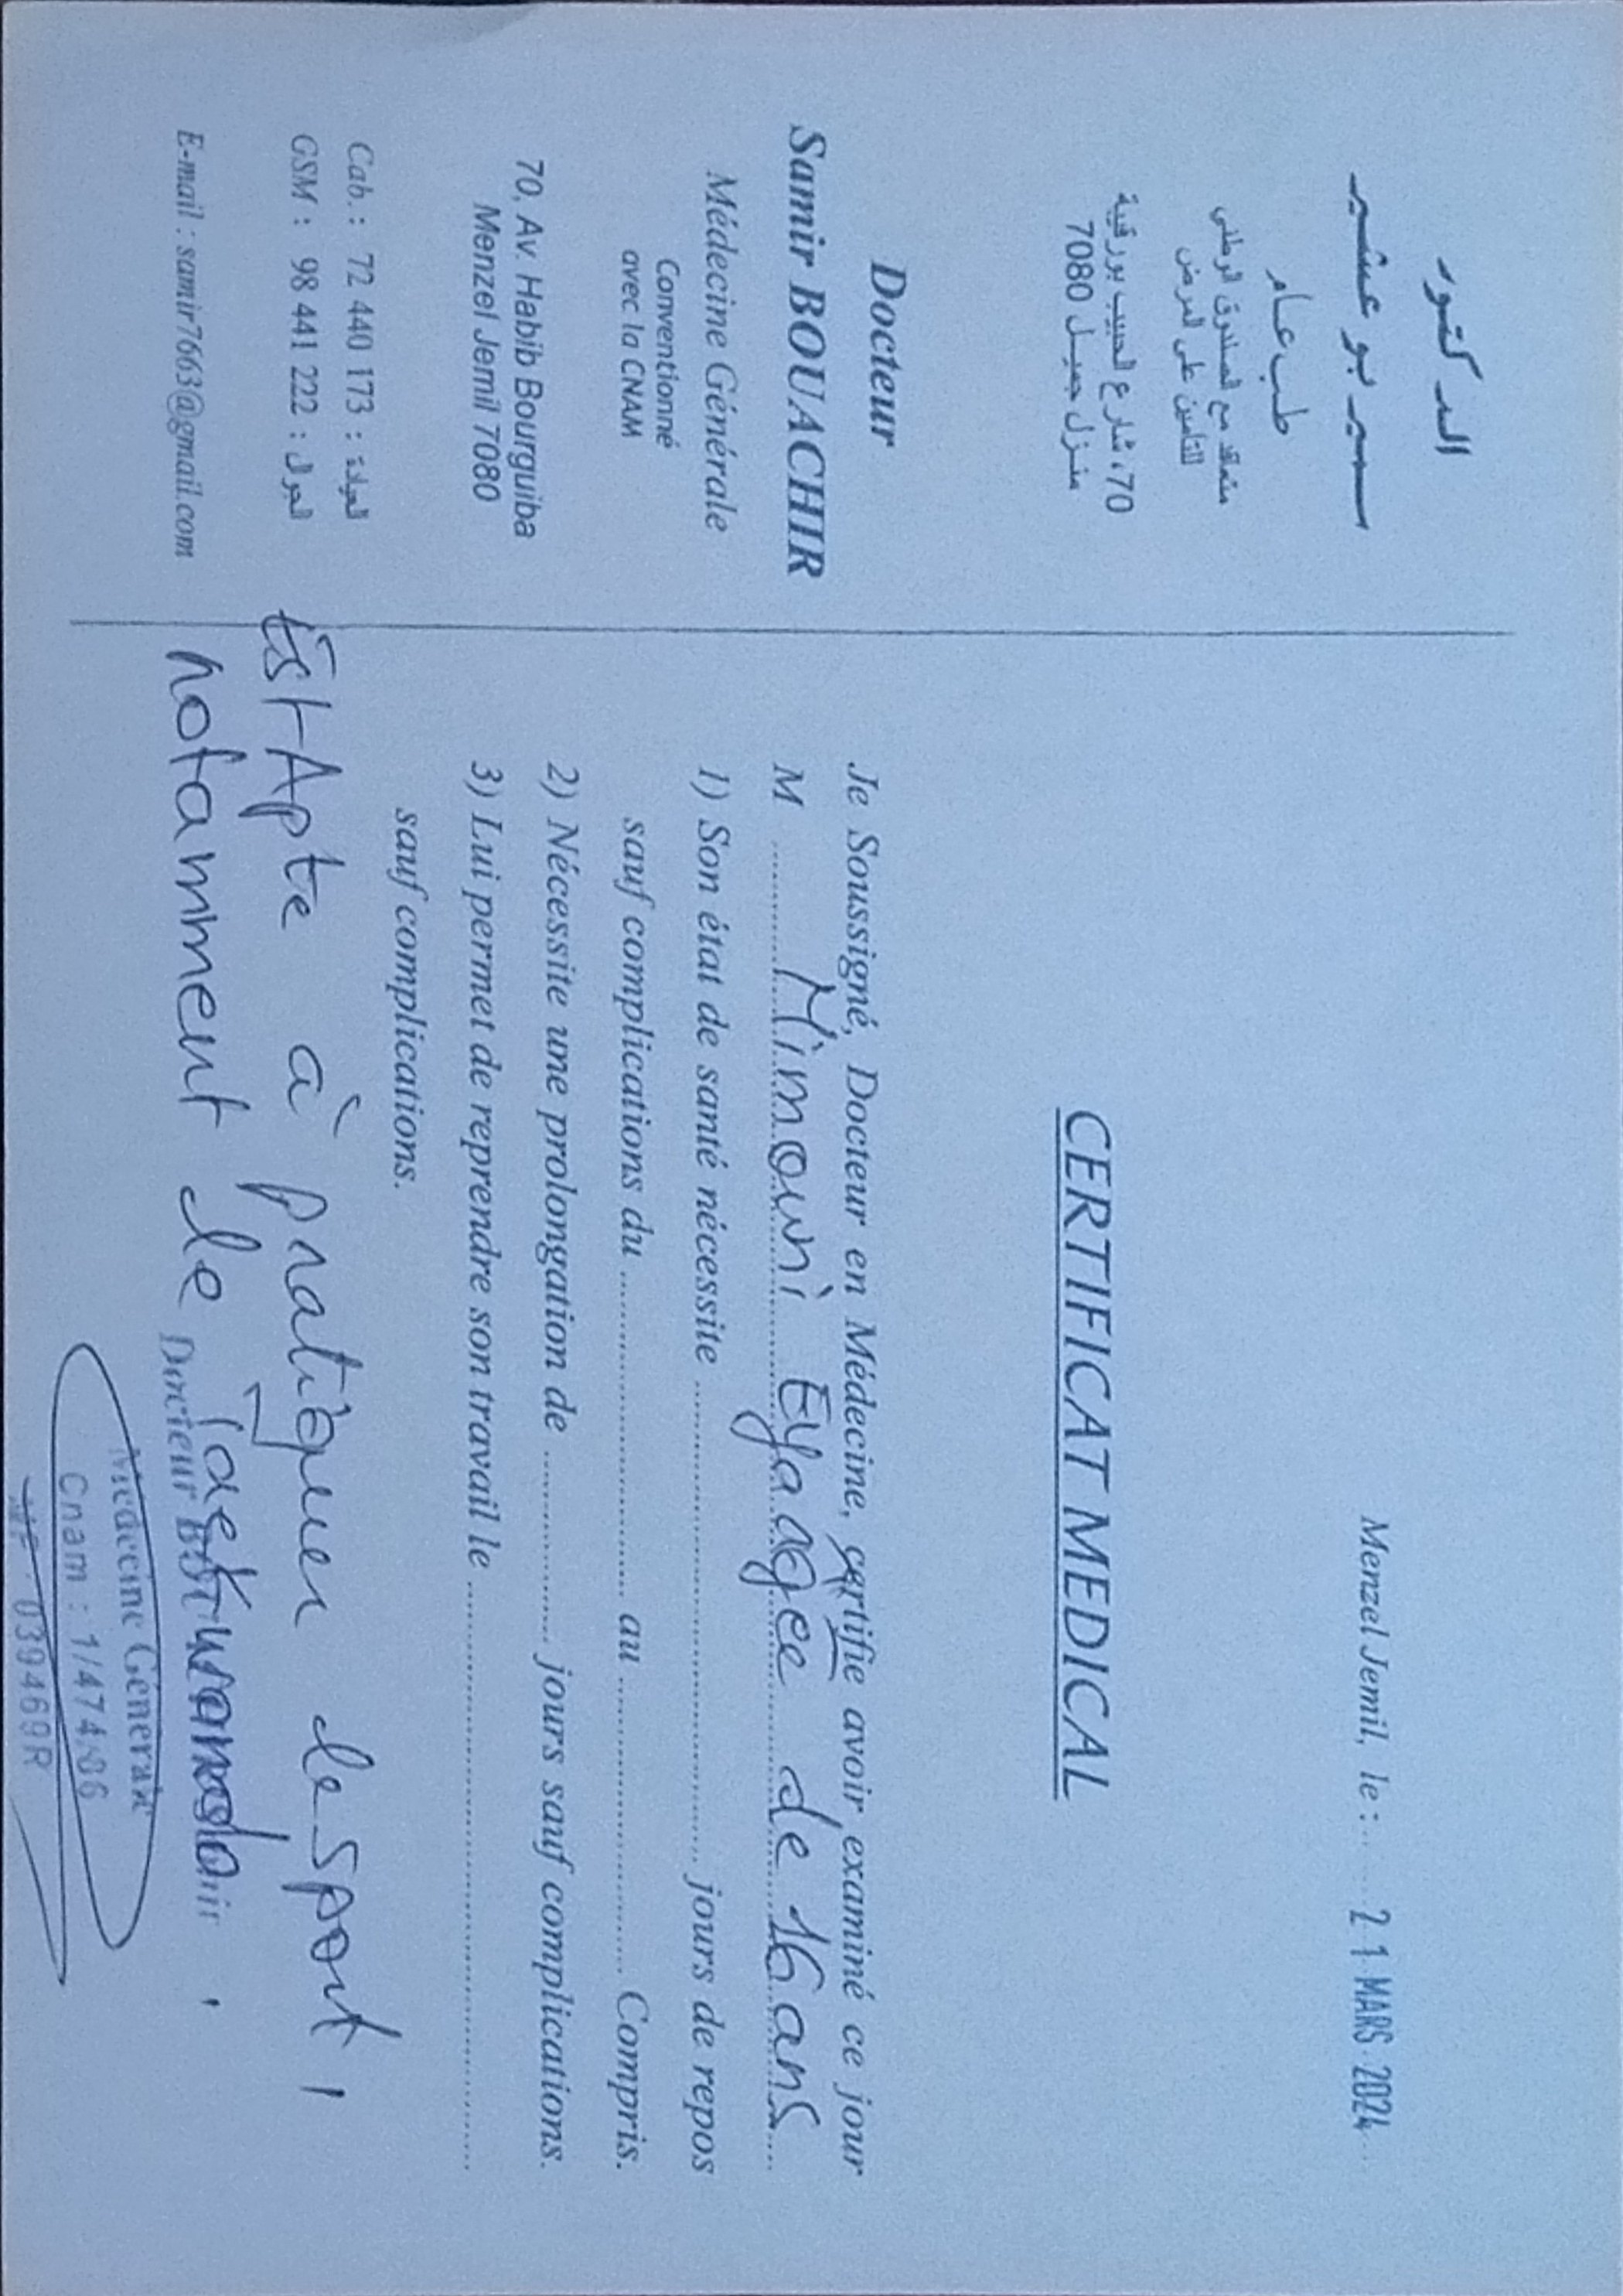 الدكتور
سمير بوعشير
طب عام
متعاقد مع الصندوق الوطني
للتأمين على المرض
70، شارع الحبيب بورقيبة
منزل جميل 7080
Docteur
Samir BOUACHIR
Médecine Générale
Conventionné
avec la CNAM
70, Av. Habib Bourguiba
Menzel Jemil 7080
Cab. : 72 440 173 : العيادة
GSM : 98 441 222 : الجوال
E-mail : samir7663@gmail.com
Menzel Jemil, le : 21 MARS 2024
CERTIFICAT MEDICAL
Je Soussigné, Docteur en Médecine, certifie avoir examiné ce jour
M Mimouni Eya agée de 16 ans
1) Son état de santé nécessite jours de repos
sauf complications du au Compris.
2) Nécessite une prolongation de jours sauf complications.
3) Lui permet de reprendre son travail le
sauf complications.
Est Apte à pratiquer le sport,
notamment le
Médecine Générale
Cnam : 1/474/06
039469R